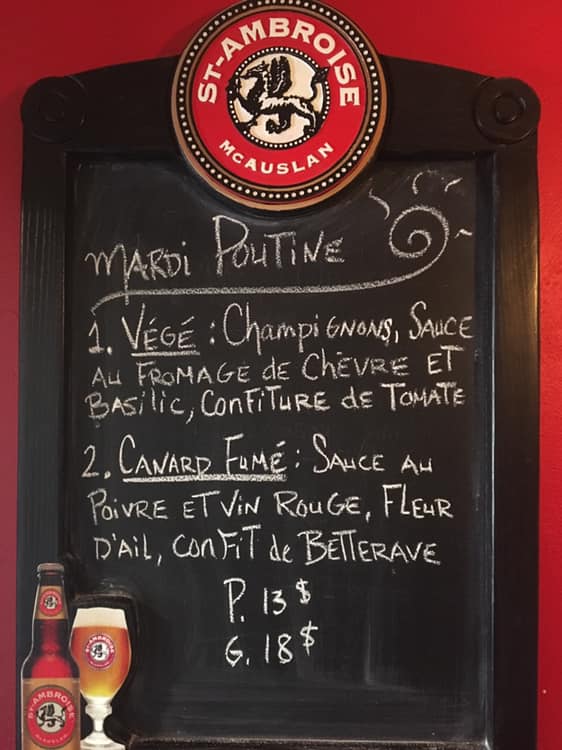 ST-AMBROISE
McAUSLAN
MARDI POUTINE
1. VÉGÉ : CHAMPIGNONS, SAUCE
AU FROMAGE de CHÈVRE ET
BASILIC, CONFITURE de TOMATE
2. CANARD FUMÉ : SAUCE AU
POIVRE ET VIN ROUGE, FLEUR
D'AIL, CONFIT de BETTERAVE
P. 13 $
G. 18 $
ST-AMBROISE
ST-AMBROISE
McAUSLAN